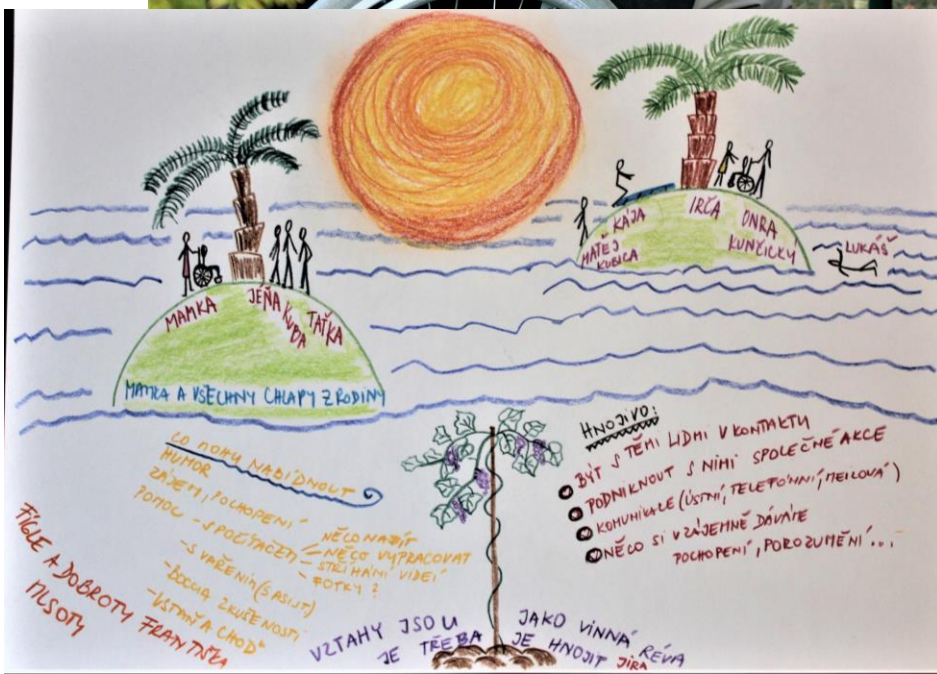 MAMKA
JÉŇA
KUBA
TAŤKA
MAMKA A VŠECHNY CHLAPY Z RODINY
MATĚJ
KUBICA
KÁJA
IRČA
ONRA
KUNČICKY
LUKÁŠ
CO MOHU NABÍDNOUT
HUMOR
ZÁJEM, POCHOPENÍ
POMOC - S POČÍTAČEM - NĚCO NAJÍT
- NĚCO VYPRACOVAT
- STŘÍHÁNÍ VIDEÍ
- FOTKY?
- S VAŘENÍM (S ASIST)
- BOCCIA ZKUŠENOSTI
- VSTAŇ A CHOĎ"
FÍGLE A DOBROTY FRANTIŠKA
MLSOTY
HNOJIVO:
BÝT S TĚMI LIDMI V KONTAKTU
PODNIKNOUT S NIMI SPOLEČNÉ AKCE
KOMUNIKACE (ÚSTNÍ, TELEFONNÍ, MEILOVÁ)
NĚCO SI VZÁJEMNĚ DÁVÁME
POCHOPENÍ, POROZUMĚNÍ...
VZTAHY JSOU JAKO VINNÁ RÉVA
JE TŘEBA JE HNOJIT JÍRA